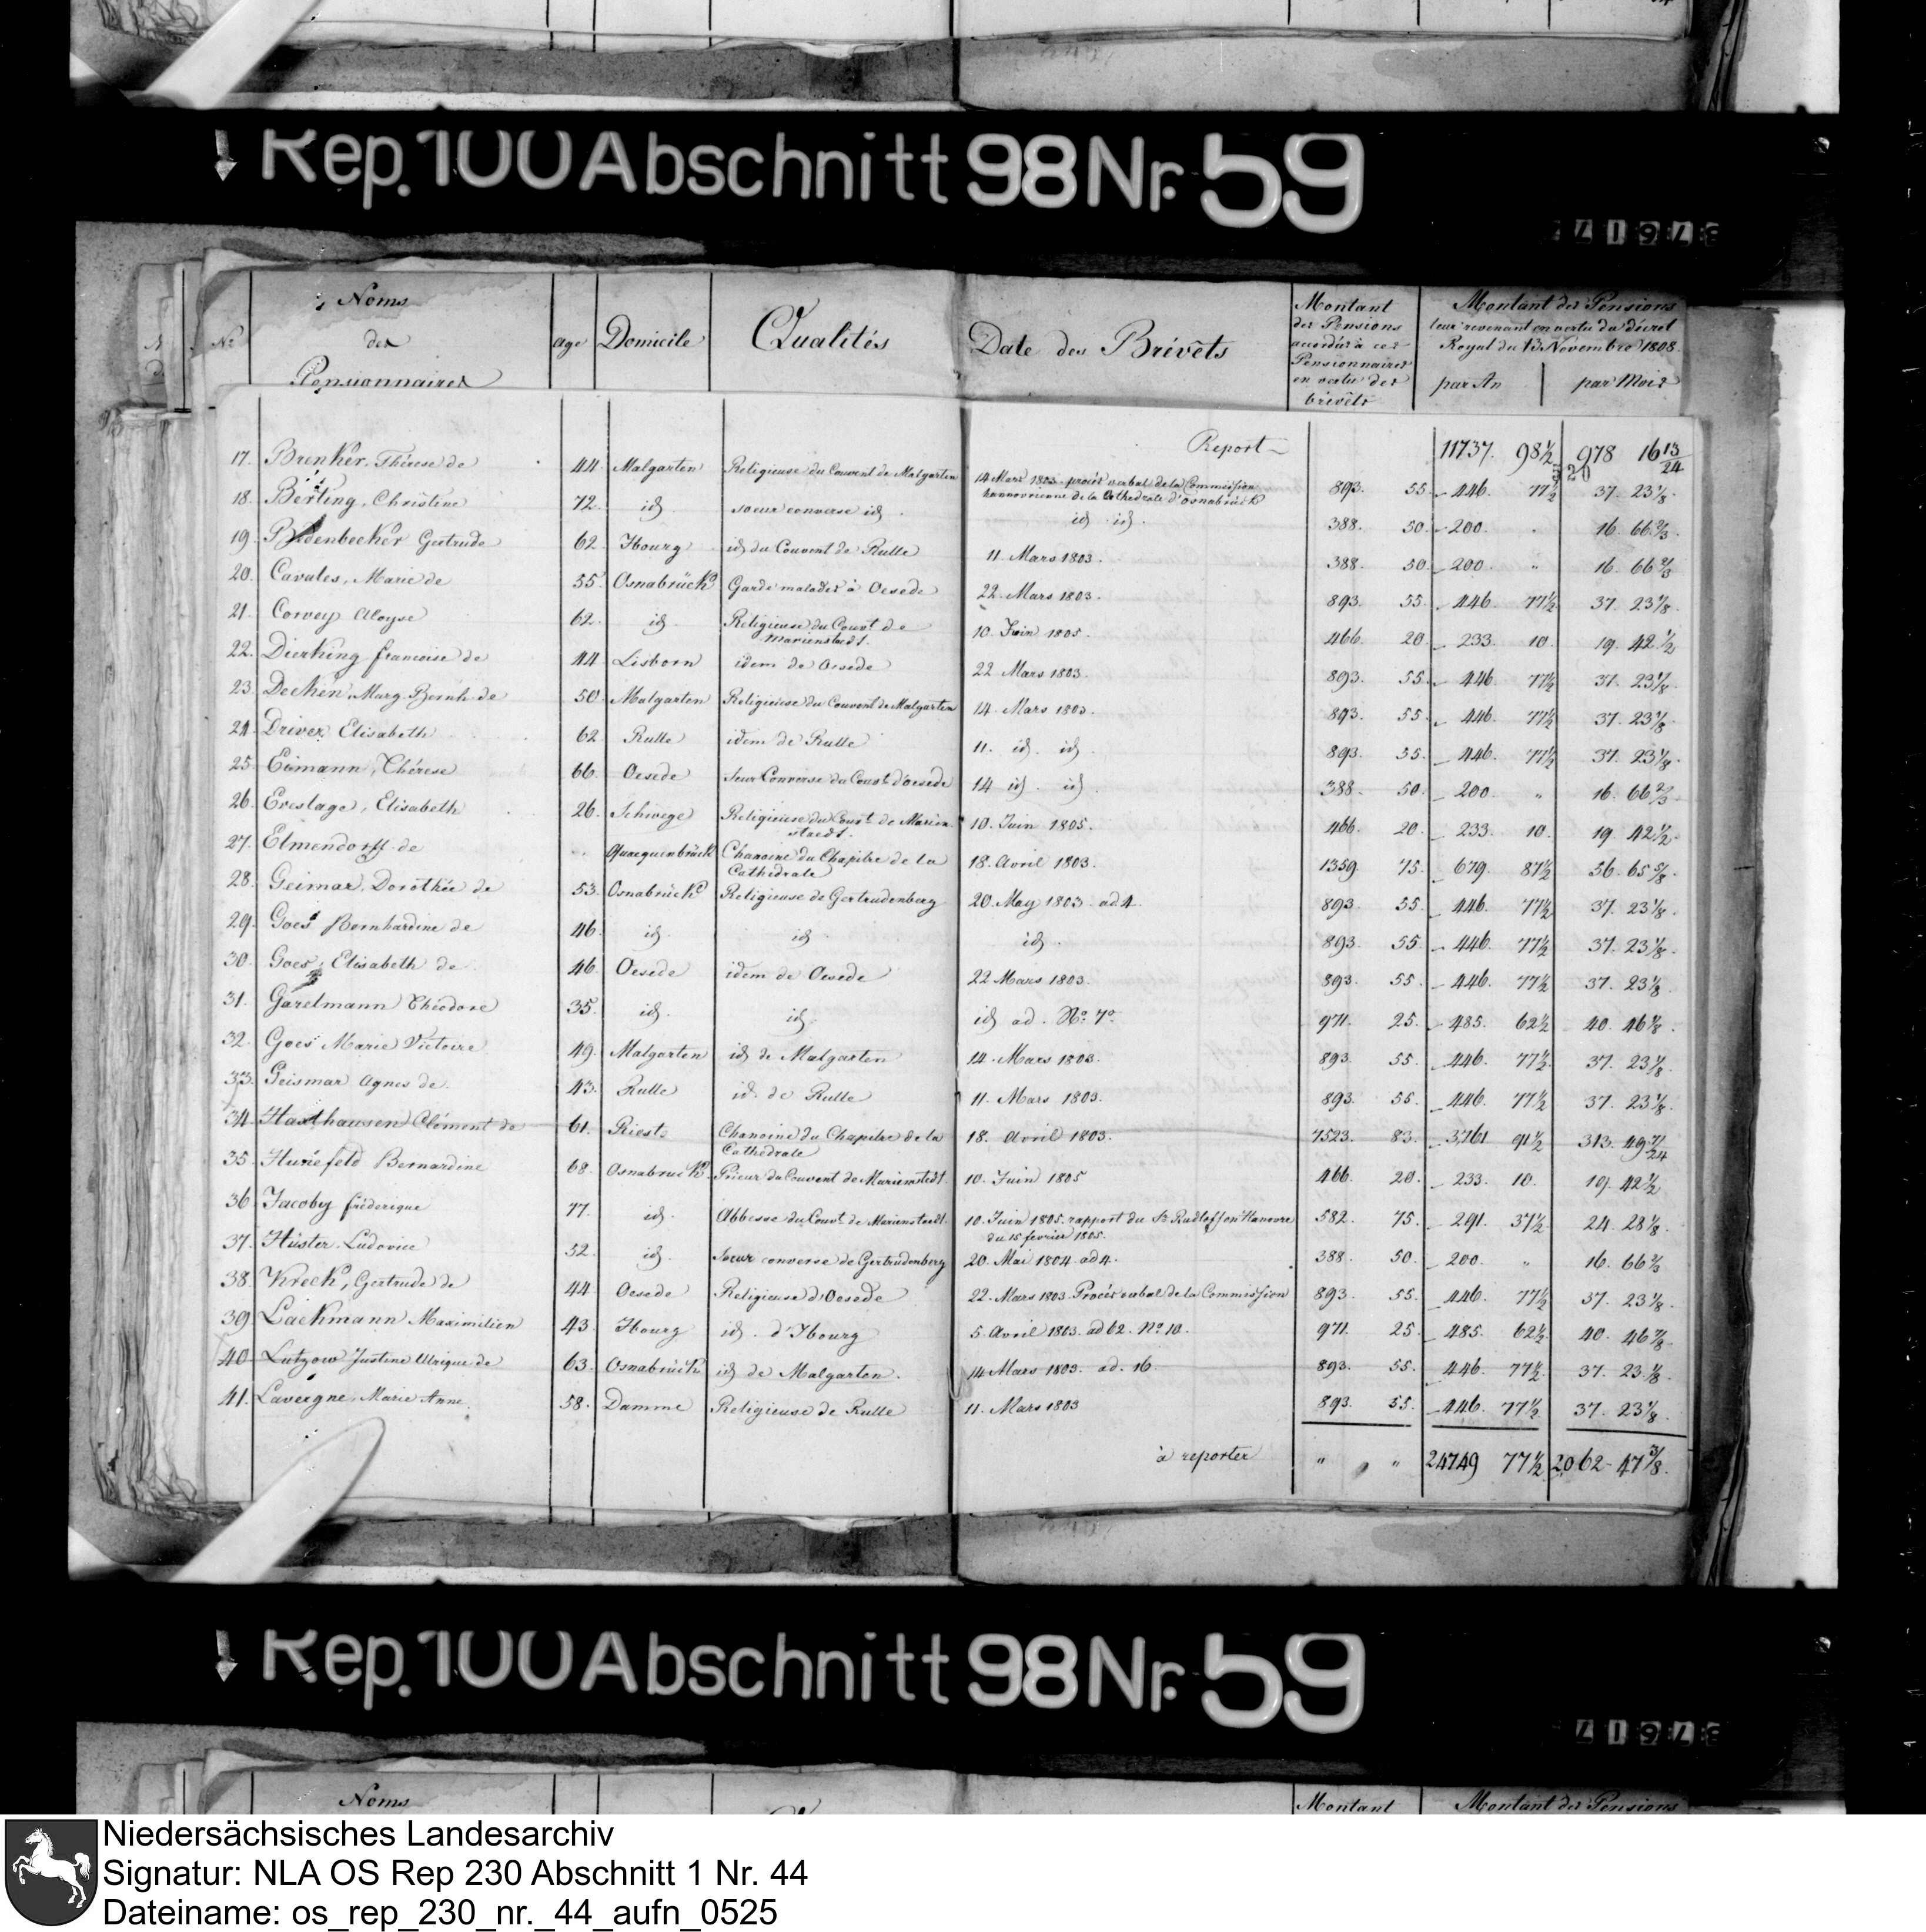 Rep. 100 Abschnitt 98 Nr. 59
Nº Noms des Pensionnaires age Domicile Qualités Date des Brévèts Montant des Pensions accordés à ces Pensionnaires en vertu des brévèts Montant des Pensions leur revenant en vertu du décret Royal du 13 Novembre 1808. par An par Mois
Report 11737. 98½ 978 16 13/24
17. Brenker, Thérese de 44 Malgarten Religieuse du Couvent de Malgarten 14 Mars 1803 procès verbal de la Commission hannovrienne de la Cathedrale d'osnabrück 893. 55. 446. 77½ 37. 23⅛.
18. Berting, Christine 72. id. soeur converse id. id. id. 388. 50. 200. 16. 66⅔.
19. Gertrude 62. Ibourg id du Couvent de Rulle 11 Mars 1803. 388. 50. 200. " 16. 66⅔
20. Cavales, Marie de 55. Osnabrück Garde malades à Oesede 22. Mars 1803. 893. 55. 446. 77½ 37. 23⅛.
21. Corvey Aloyse 62. id. Religieuse du Couvt de Marienstedt. 10. Juin 1805. 466. 20. 233. 10. 19. 42.½
22. Dierking francoise de 44 Lisborn idem de Oesede 22 Mars 1803. 893. 55. 446. 77½ 37. 23⅛.
23. Decken Marg. Bernh. de 50. Malgarten Religieuse du Couvent de Malgarten 14. Mars 1803. 893. 55. 446. 77½ 37. 23⅛.
24. Driver Elisabeth 62 Rulle idem de Rulle 11. id. id. 893. 55. 446. 77½ 37. 23⅛.
25. Eimann, Thérese 66. Oesede Soeur Converse du Couvt d'oesede 14 id. id. 388. 50. 200. " 16. 66⅔.
26. Ereslage, Elisabeth 26. Schwege Religieuse du Couvt de Marienstaedt. 10. Juin 1805. 466. 20. 233. 10. 19. 42½.
27. Elmendorff de Quaquenbrück Chanoine du Chapitre de la Cathédrale 18. Avril 1803. 1359 75. 679. 87½ 56. 65⅝.
28. Geimar, Dorothée de 53. Osnabrück Religieuse de Gertrudenberg 20. May 1803. ad 4. 893. 55. 446. 77½ 37. 23⅛.
29. Goes Bernhardine de 46. id. id. id. 893. 55. 446. 77½ 37. 23⅛.
30. Goes, Elisabeth de 46. Oesede idem de Oesede 22 Mars 1803. 893. 55. 446. 77½ 37. 23⅛.
31. Garelmann Théodore 35. id. id. id ad. No. 7º. 971. 25. 485. 62½ 40. 46⅞.
32. Goes Marie Victoire 49. Malgarten id de Malgarten 14. Mars 1803. 893. 55. 446. 77½. 37. 23⅛.
33. Geismar Agnes de. 43. Rulle id. de Rulle 11. Mars 1803. 893. 55. 446. 77½ 37. 23⅛.
34 Haxthausen Clément de 61. Rieste Chanoine du Chapitre de la Cathédrale 18. Avril 1803. 7523. 83. 3761 91½ 313. 49 7/24
35. Hunefeld Bernardine 68. Osnabruck Prieur du Couvent de Marienstedt 10. Juin 1805 466 20. 233. 10. 19. 42½
36. Jacoby fréderique 77. id. Abbesse du Couvt de Marienstaedt. 10. Juin 1805. rapport du Sr Rudloff on Hanovre du 15 fevrier 1805. 582. 75. 291. 37½. 24. 28⅛.
37. Hüster Ludovice 52. id. Soeur converse de Gertrudenberg 20. Mai 1804. ad 4. 388. 50. 200. " 16. 66⅔
38. Kreck, Gertrude de 44 Oesede Religieuse d'Oesede 22. Mars 1803. Procès verbal de la Commission 893. 55. 446. 77½ 37. 23⅛.
39. Lackmann Maximilien 43. Ibourg id. d'Ibourg 5. Avril 1803. ad 62. No. 10. 971. 25. 485. 62½. 40. 46⅞.
40. Lutzow Justine Ulrique de 63. Osnabrück id de Malgarten. 14 Mars 1803. ad. 16 893. 55. 446. 77½. 37. 23.⅛.
41. Lavergne, Marie Anne. 58. Damme Religieuse de Rulle 11. Mars 1803 893. 55. 446. 77½ 37. 23⅛.
à reporter " " 24749 77½ 2062 - 47⅜.
Rep. 100 Abschnitt 98 Nr. 59
Noms Montant Montant des Pensions
Niedersächsisches Landesarchiv
Signatur: NLA OS Rep 230 Abschnitt 1 Nr. 44
Dateiname: os_rep_230_nr._44_aufn_0525